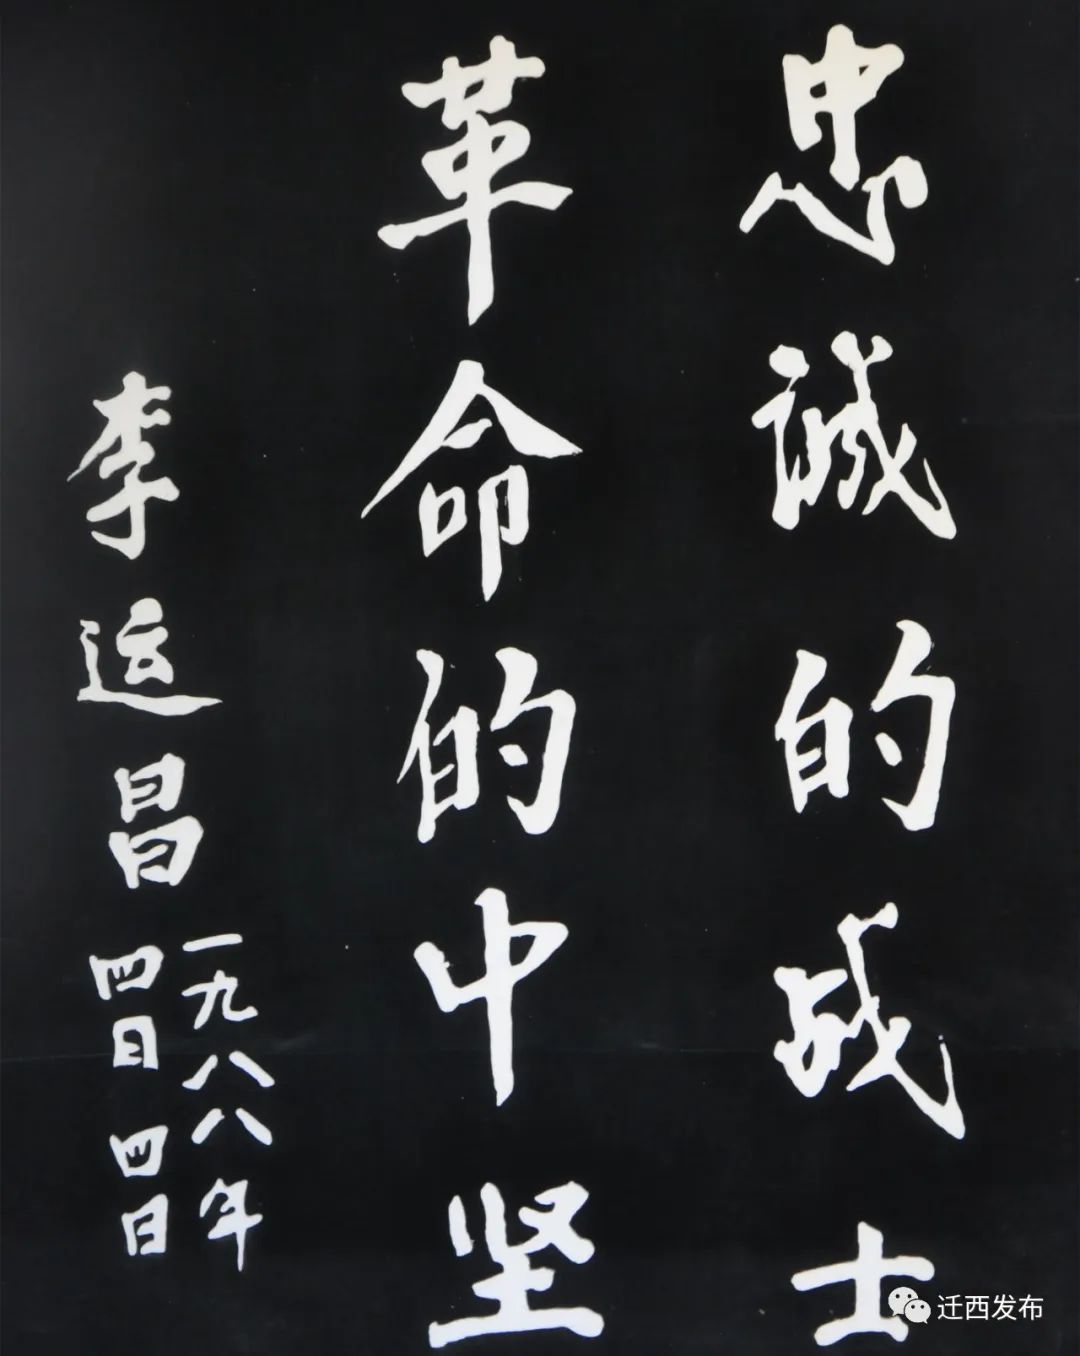 忠诚的战士
革命的中坚
李运昌
一九八八年
四月四日
迁西发布